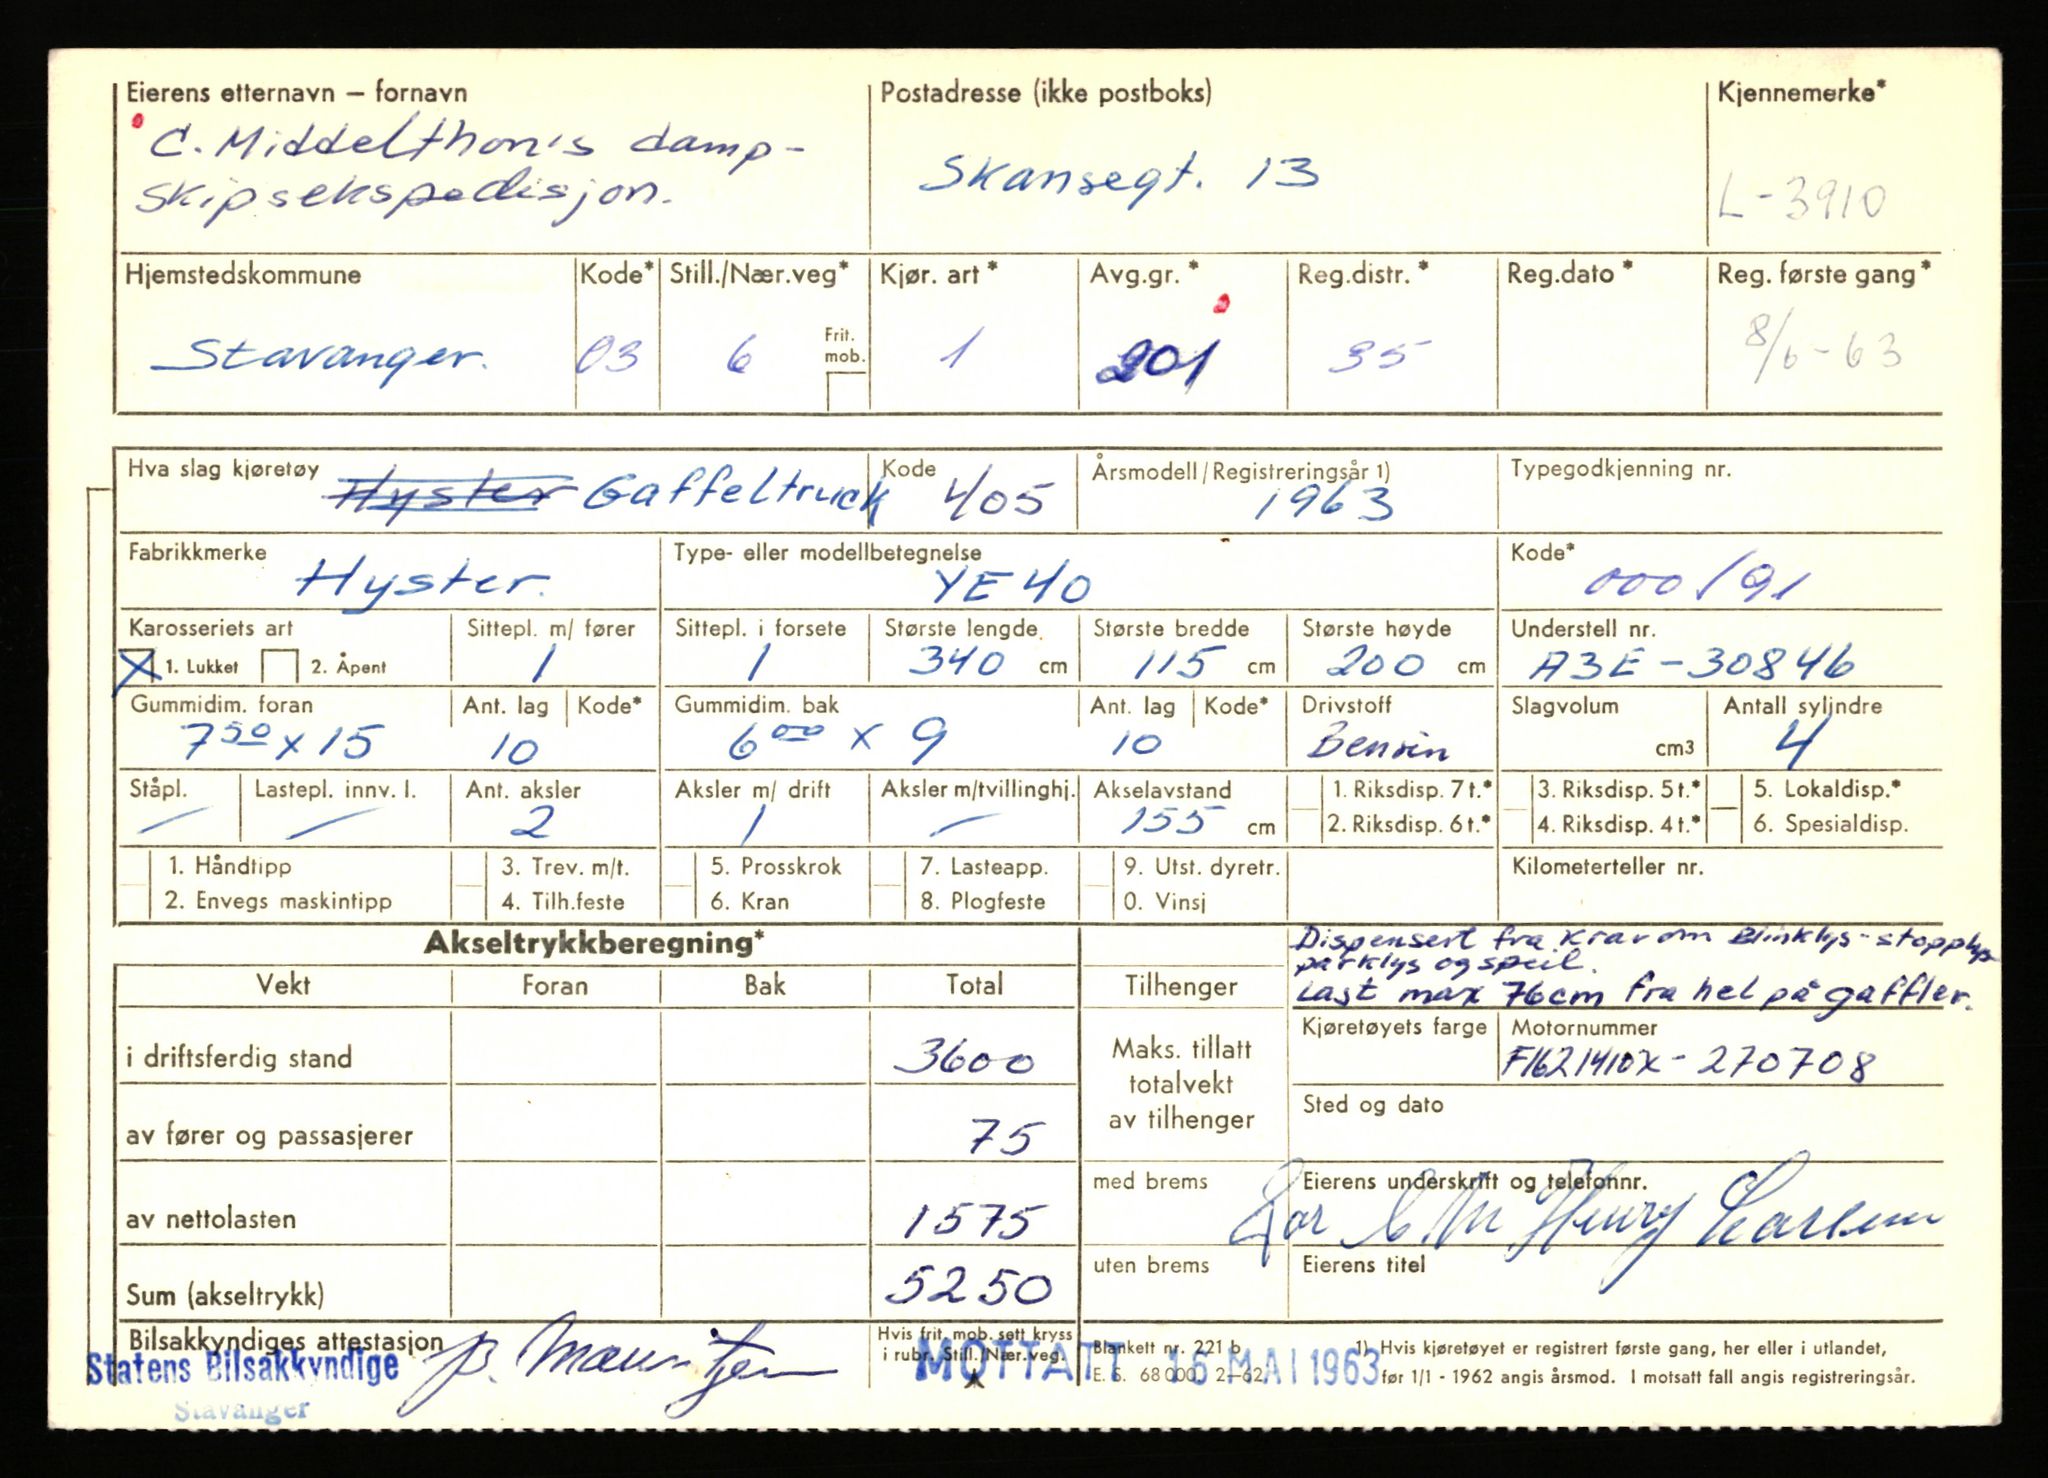 Eierens etternavn – fornavn Postadresse (ikke postboks) Kjennemerke*
C. Middelthon's damp-
skipsekspedisjon. Skansegt. 13 L-3910
Hjemstedskommune Kode* Still./Nær.veg* Kjør. art* Avg.gr.* Reg.distr.* Reg.dato* Reg. første gang*
Frit. mob.
Stavanger. 03 6 1 201 35 8/6-63
Hva slag kjøretøy Kode Årsmodell/Registreringsår 1) Typegodkjenning nr.
Hyster Gaffeltruck 405 1963
Fabrikkmerke Type- eller modellbetegnelse Kode*
Hyster. YE 40 000/91
Karosseriets art Sittepl. m/ fører Sittepl. i forsete Største lengde Største bredde Største høyde Understell nr.
X 1. Lukket 2. Åpent 1 1 340 cm 115 cm 200 cm A3E-30846
Gummidim. foran Ant. lag Kode* Gummidim. bak Ant. lag Kode* Drivstoff Slagvolum Antall sylindre
7 50 x 15 10 6 00 x 9 10 Bensin cm3 4
Ståpl. Lastepl. innv. l. Ant. aksler Aksler m/ drift Aksler m/tvillinghj. Akselavstand 1. Riksdisp. 7 t.* 3. Riksdisp. 5 t.* 5. Lokaldisp.*
/ / 2 1 / 155 cm 2. Riksdisp. 6 t.* 4. Riksdisp. 4 t.* 6. Spesialdisp.
1. Håndtipp 3. Trev. m/t. 5. Prosskrok 7. Lasteapp. 9. Utst. dyretr. Kilometerteller nr.
2. Envegs maskintipp 4. Tilh.feste 6. Kran 8. Plogfeste 0. Vinsj
Akseltrykkberegning* Dispensert fra krav om Blinklys-stopplys
parklys og speil.
Vekt Foran Bak Total Tilhenger Last max 76cm fra hel på gaffler.
Kjøretøyets farge Motornummer
i driftsferdig stand 3600 Maks. tillatt totalvekt av tilhenger F1621410X-270708
Sted og dato
av fører og passasjerer 75
med brems Eierens underskrift og telefonnr.
av nettolasten 1575 for C. M. Henry Larsen
uten brems Eierens titel
Sum (akseltrykk) 5250
Bilsakkyndiges attestasjon Hvis frit. mob. sett kryss i rubr. Still./Nær.veg. Blankett nr. 221 b 1) Hvis kjøretøyet er registrert første gang, her eller i utlandet,
Statens Bilsakkyndige MOTTATT 16 MAI 1963 E. S. 68 000. 2–62 før 1/1 - 1962 angis årsmod. I motsatt fall angis registreringsår.
Stavanger